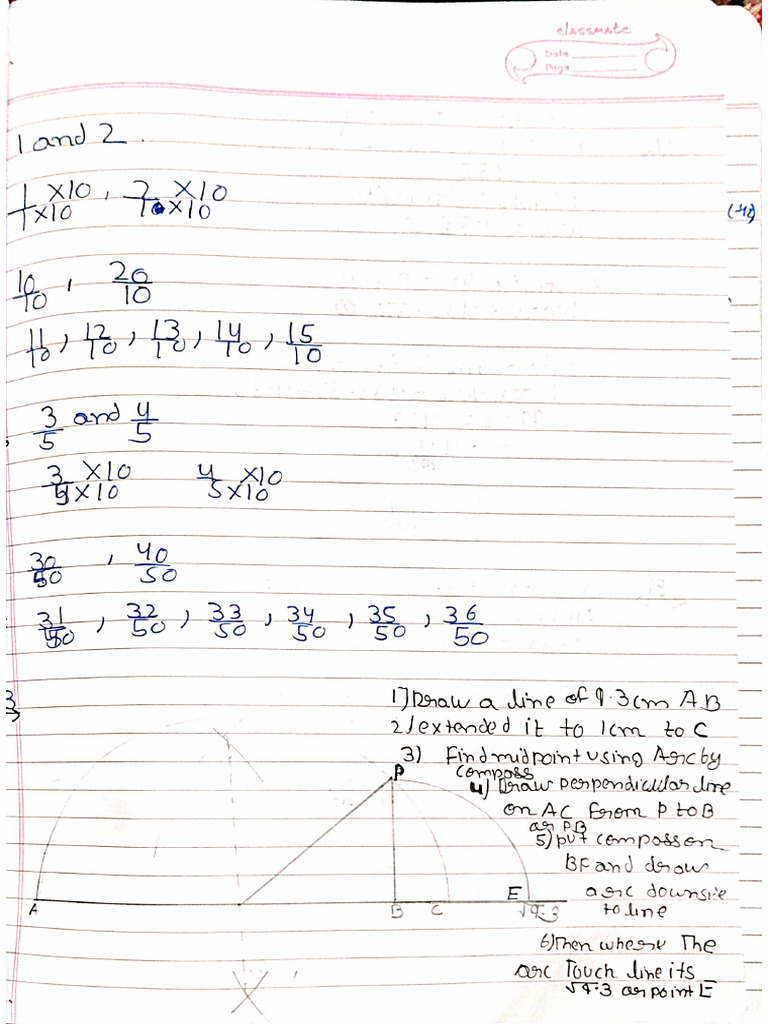 classmate
Date
Page
1 and 2.
1×10/1×10, 2×10/1×10
(-42)
10/10, 20/10
11/10, 12/10, 13/10, 14/10, 15/10
3/5 and 4/5
3×10/5×10 4×10/5×10
30/50, 40/50
31/50, 32/50, 33/50, 34/50, 35/50, 36/50
1) Draw a line of 9.3cm AB
2) extended it to 1cm to C
3) Find midpoint using Arc by
compass
4) Draw perpendicular line
on AC from P to B
as PB
5) put compass on
BP and draw
arc downside
to line
6) Then where The
arc Touch line its
√9.3 as point E
P
A B C E √9.3